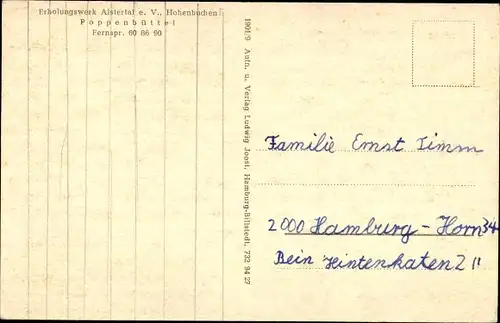 Erholungswerk Alstertal e. V., Hohenbuchen
Poppenbüttel
Fernspr. 60 86 90
1901/9 Aufn. u. Verlag Ludwig Joost, Hamburg-Billstedt, 732 94 27
Familie Ernst Timm
2000 Hamburg - Horn 34
Bein Hintenkaten 2 II